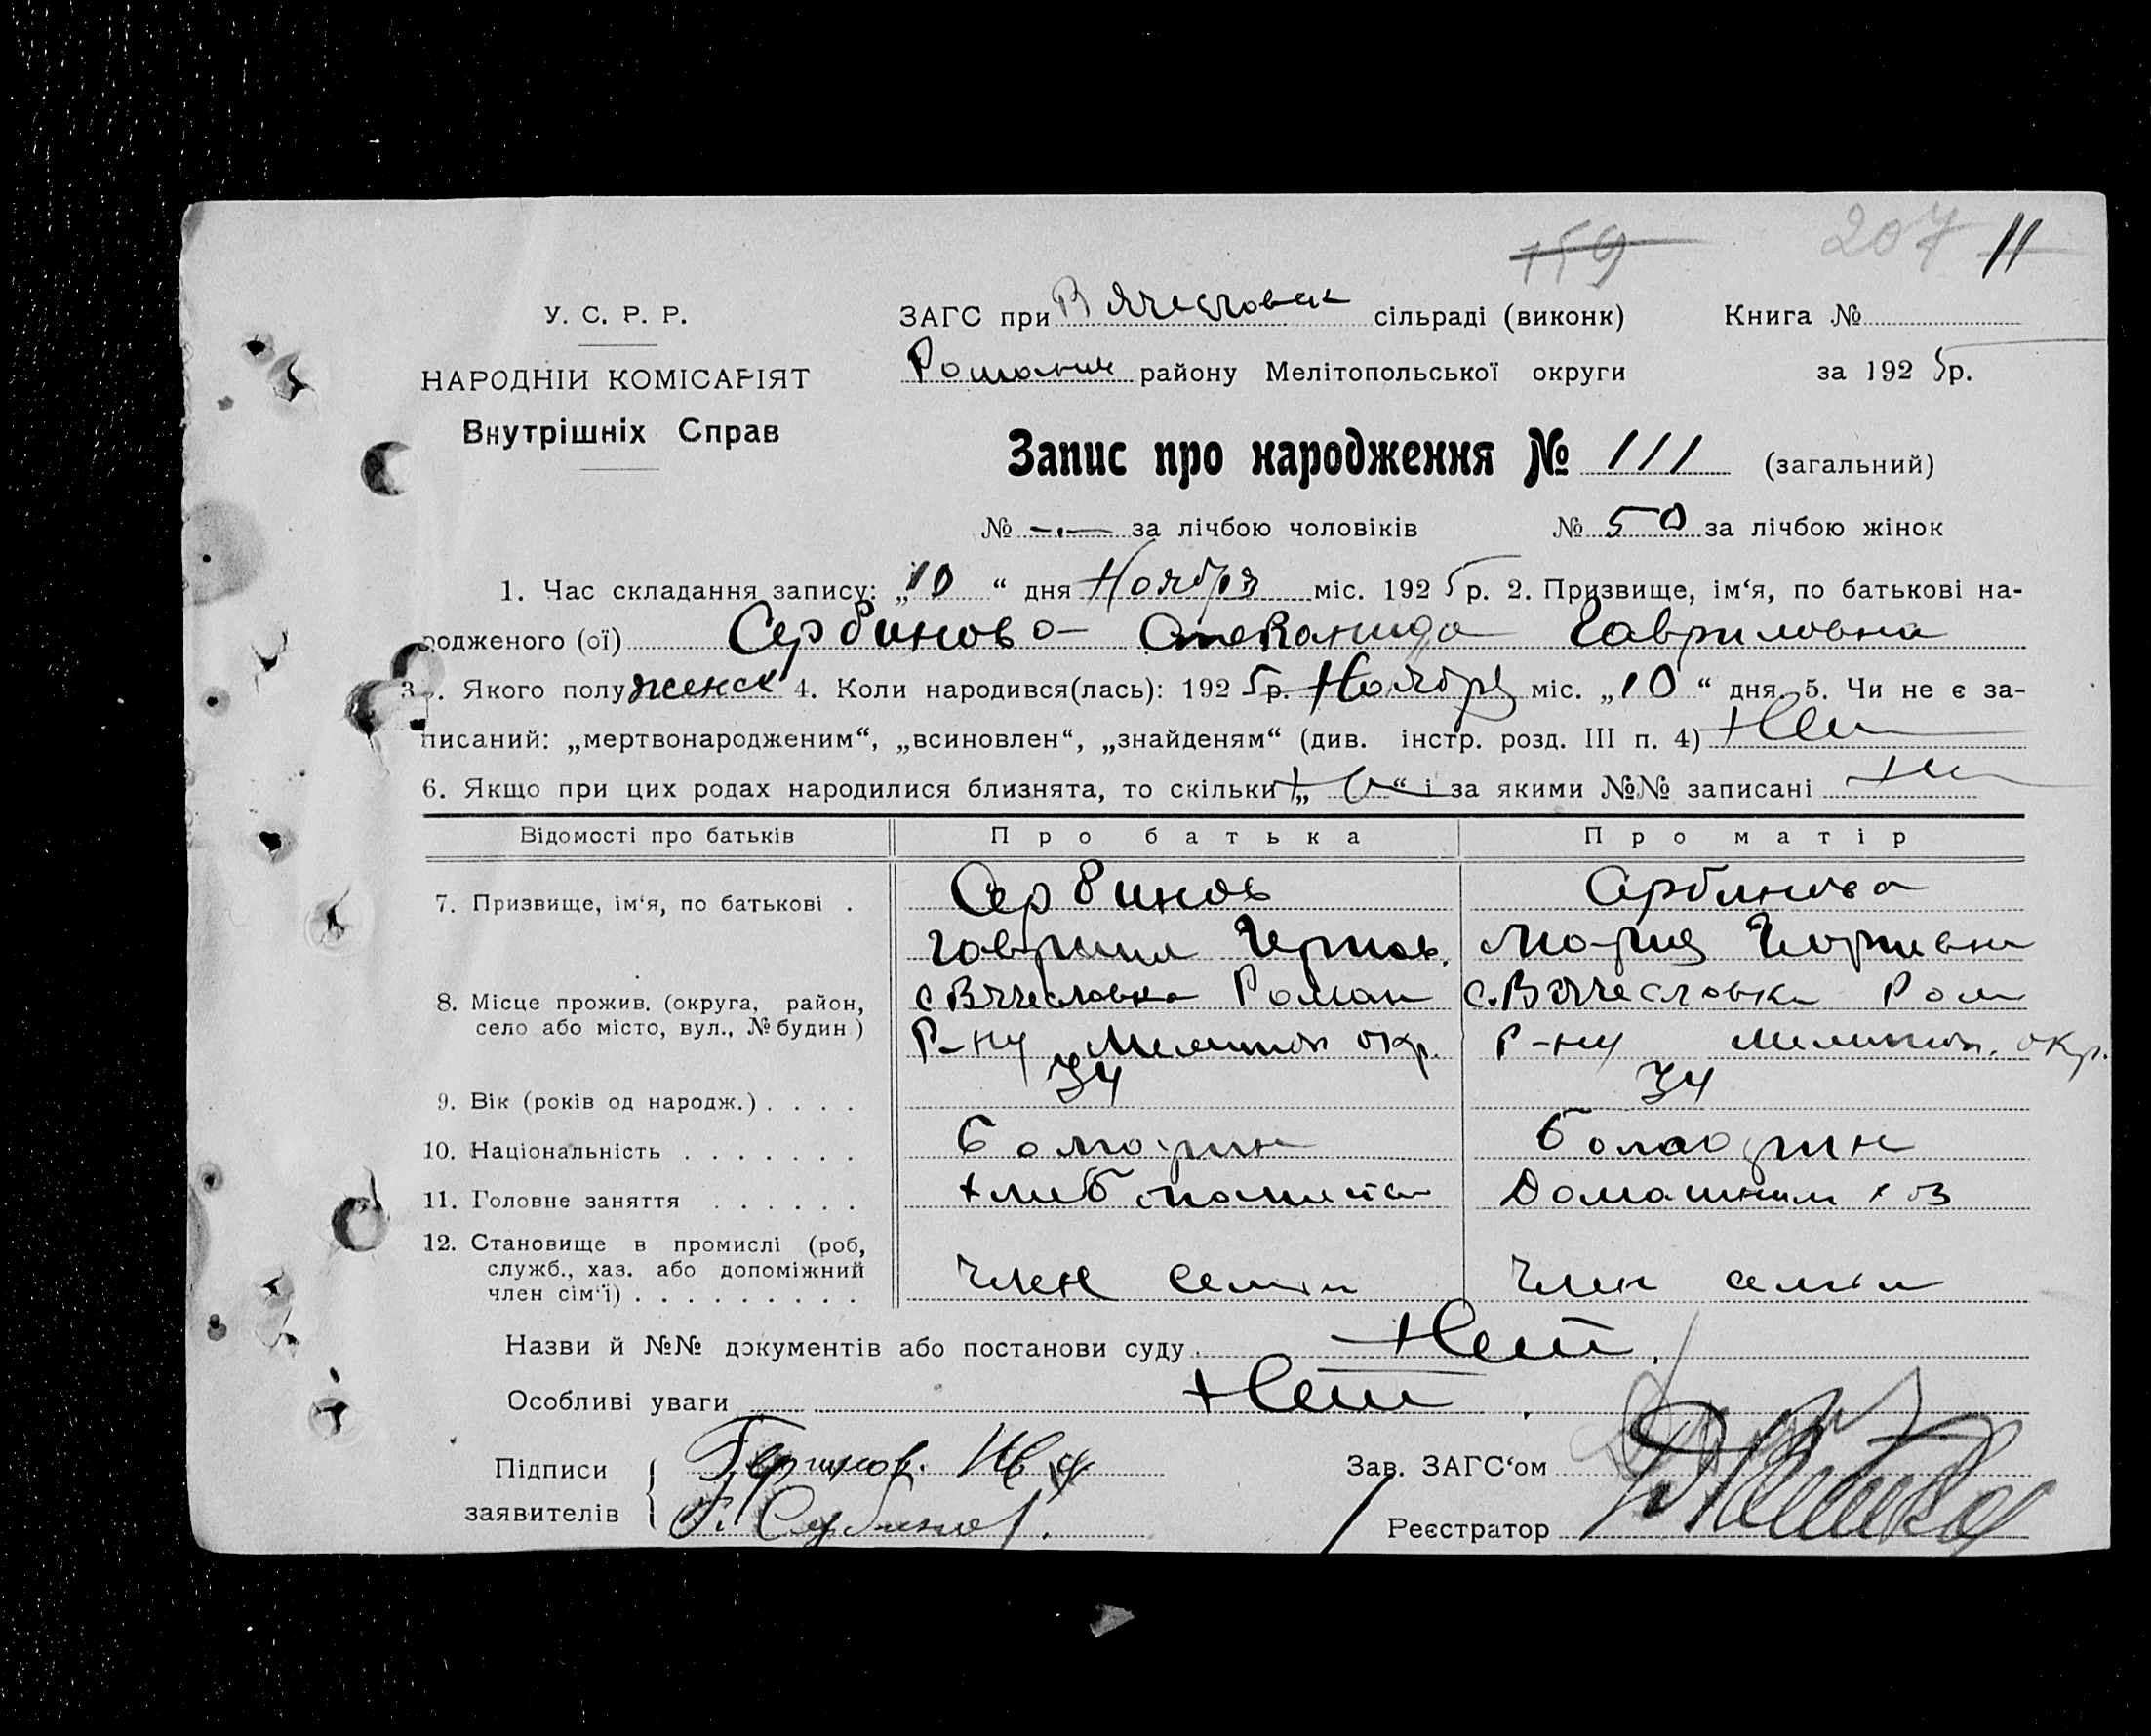 159 207 11
У. С. Р. Р.
НАРОДНІЙ КОМІСАРІЯТ
Внутрішніх Справ
ЗАГС при Вячесловск сільраді (виконк) Книга №
району Мелітопольської округи за 1925р.
Запис про народження № 111 (загальний)
№ —.— за лічбою чоловіків № 50 за лічбою жінок
1. Час складання запису: „10“ дня Ноября міс. 1925р. 2. Призвище, ім‘я, по батькові на-
родженого (ої) Сербинова Степанида Гавриловна
3. Якого полу женск 4. Коли народився(лась): 1925р. Ноября міс. „10“ дня 5. Чи не є за-
писаний: „мертвонародженим“, „всиновлен“, „знайденям“ (див. інстр. розд. III п. 4) Нет
6. Якщо при цих родах народилися близнята, то скільки „ “ і за якими №№ записані
Відомості про батьків Про батька Про матір
7. Призвище, ім‘я, по батькові . Сербинов Сербинова
Гаврил Мария
8. Місце прожив. (округа, район, с Вячесловка Роман с. Вячесловка Ром
село або місто, вул., № будин) Р-ну Мелитоп окр. Р-ну Мелитоп. окр.
9. Вік (років од народж.) . . . . 34 34
10. Національність . . . . . . . болгарин болгарин
11. Головне заняття . . . . . . Домашним хоз
12. Становище в промислі (роб,
служб., хаз. або допоміжний
член сім‘ї) . . . . . . . . . Член семьи Член семьи
Назви й №№ документів або постанови суду Нет.
Особливі уваги Нет.
Підписи Зав. ЗАГС‘ом
заявителів Г. Сербинов. Реєстратор